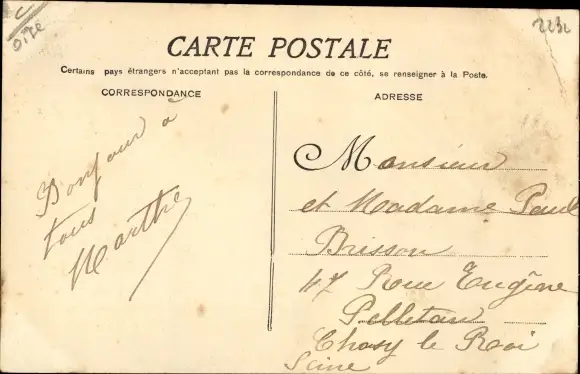 Oise
2232
CARTE POSTALE
Certains pays étrangers n'acceptant pas la correspondance de ce côté, se renseigner à la Poste.
CORRESPONDANCE
Bonjour à
tous
Marthe
ADRESSE
Monsieur
et Madame Paul
Brisson
47 Rue Eugène
Pelletan
Choisy le Roi
Seine